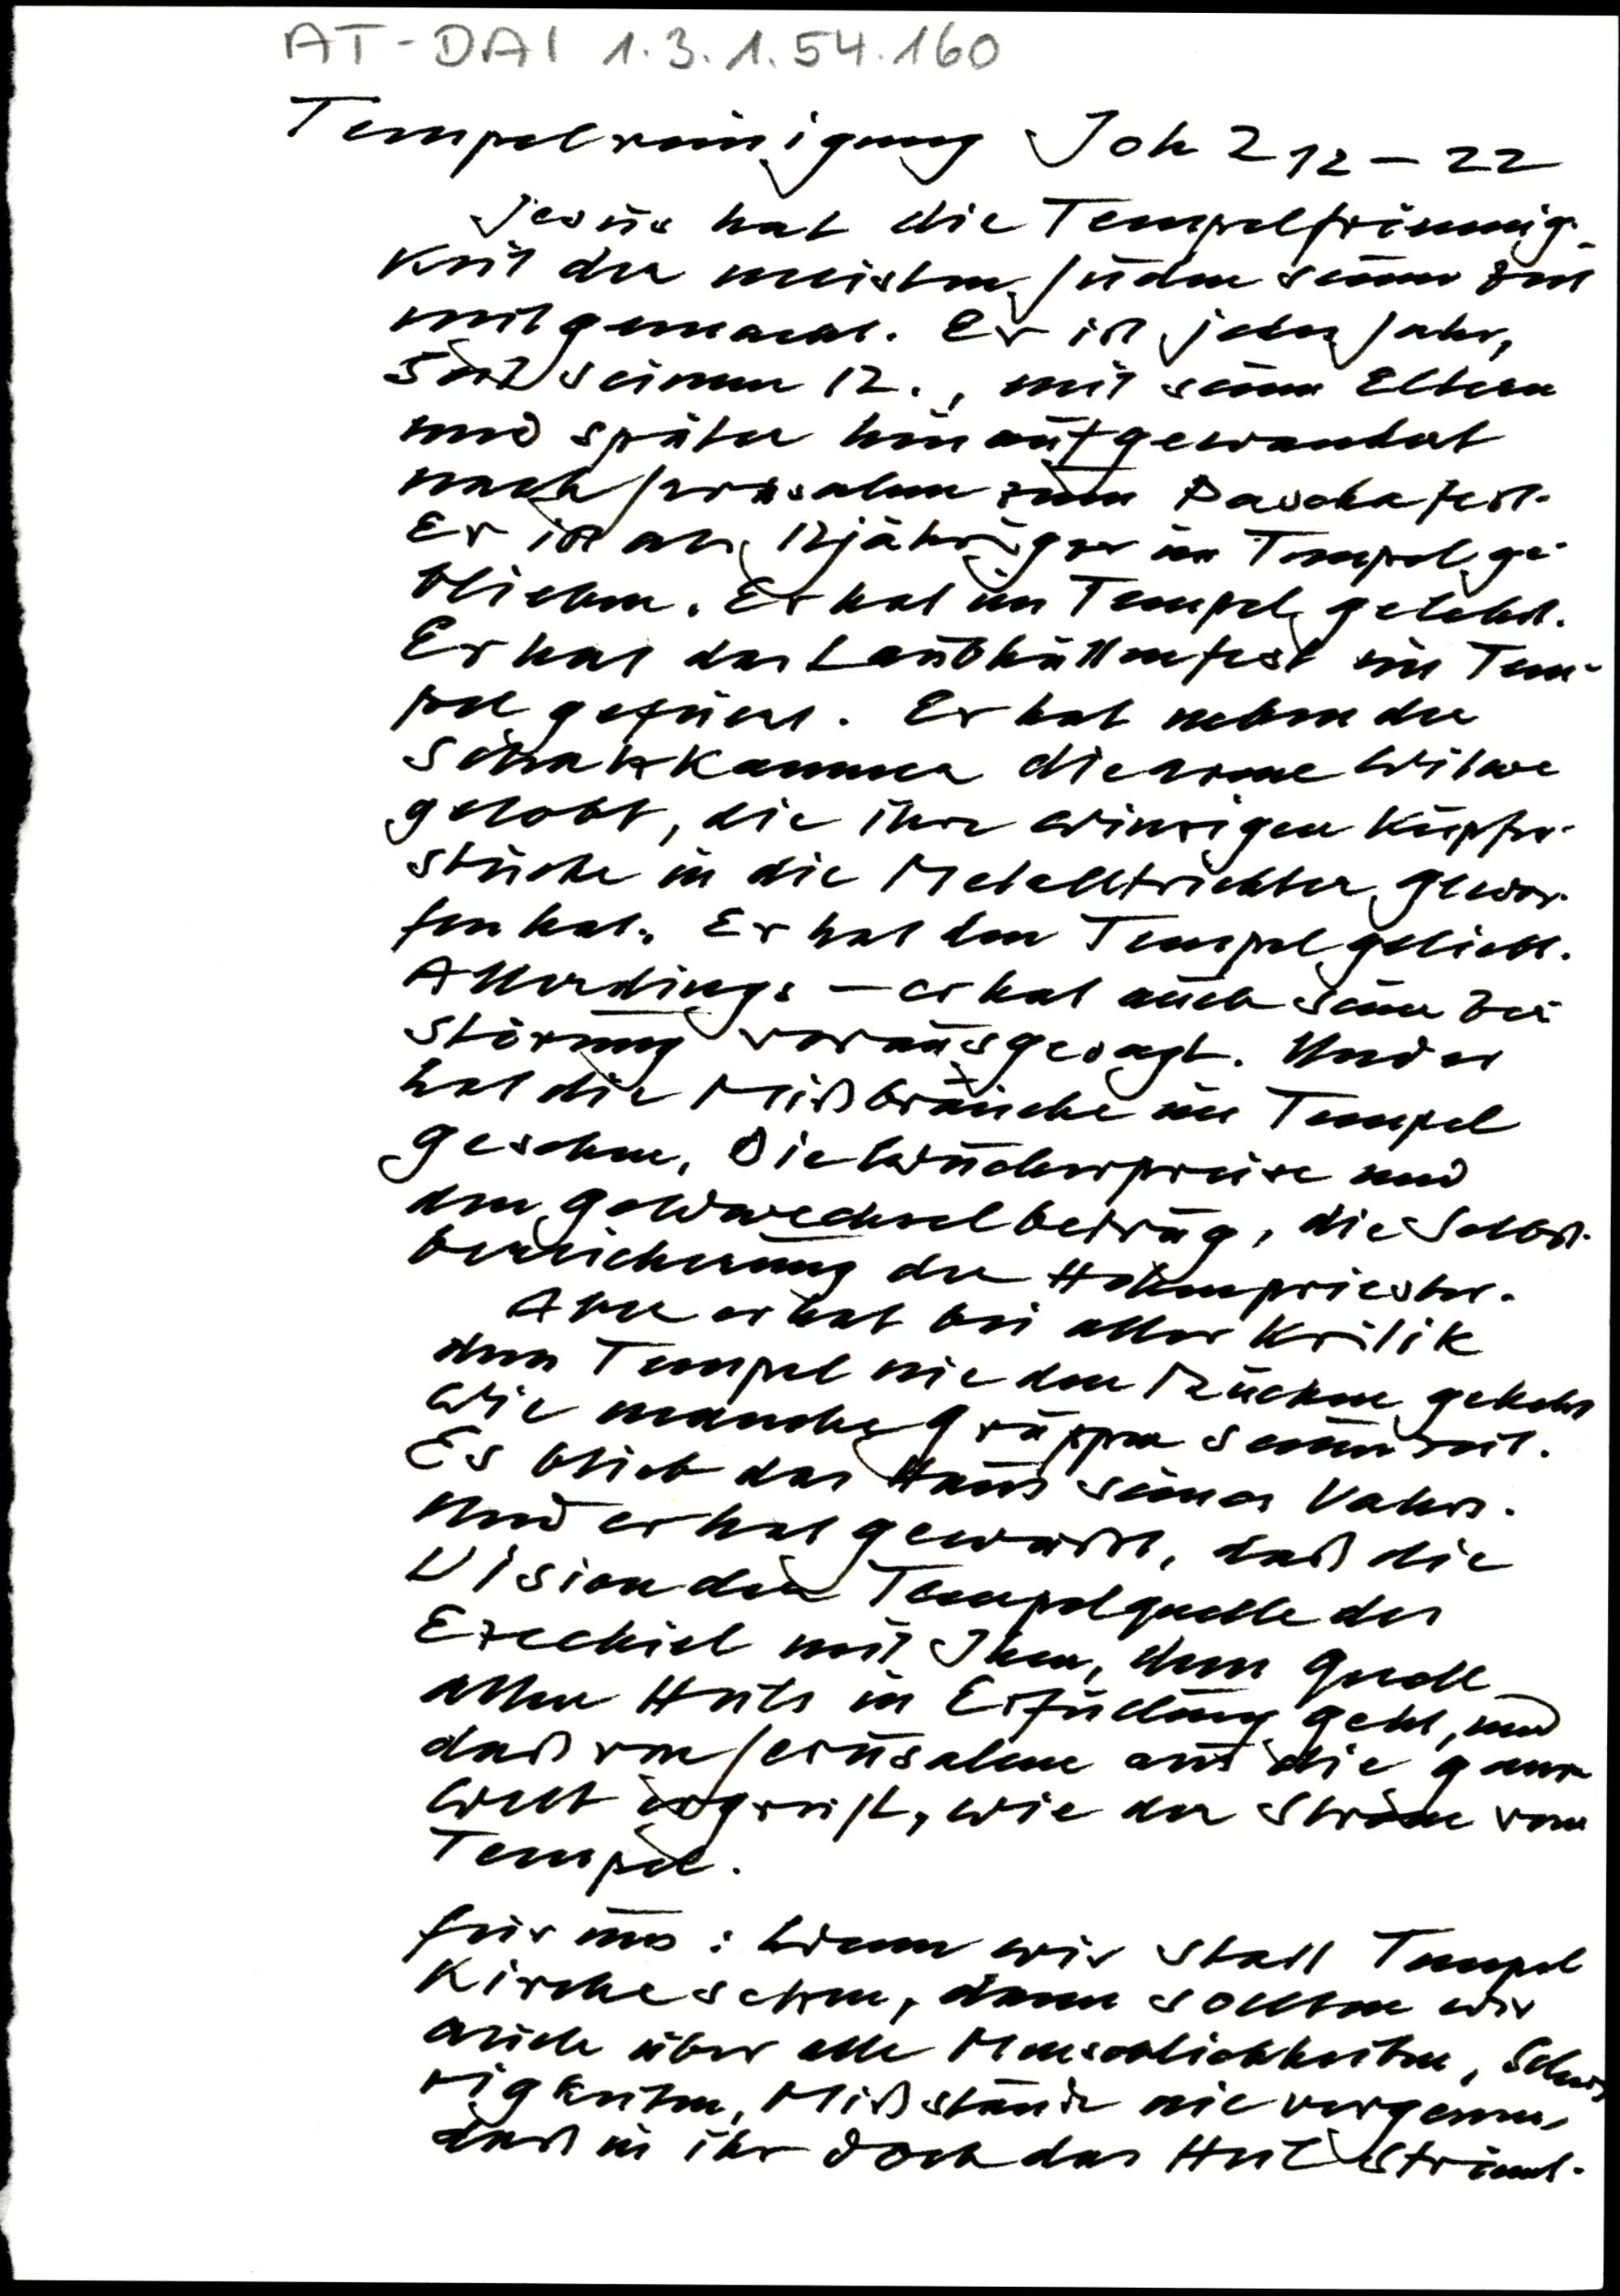 AT-DAI 1.3.1.54.160
Tempelreinigung Joh 2 12-22
Jesus hat die Tempelfrömmig-
keit der meisten Juden seiner Zeit
mitgemacht. Er ist jedes Jahr,
seit seinem 12., mit seinen Eltern
und später hinaufgewandert
nach Jerusalem zum Paschafest.
Er ist als 12jähriger im Tempel ge-
blieben. Er hat im Tempel gelehrt.
Er hat das Laubhüttenfest im Tem-
pel gefeiert. Er hat neben der
Schatzkammer die arme Witwe
gelobt, die ihre winzigen Kupfer-
stücke in die Metalltrichter gewor-
fen hat. Er hat den Tempel geliebt.
Allerdings – er hat auch seine Zer-
störung vorausgesagt. Und er
hat die Mißbräuche im Tempel
gesehen, Die Wucherpreise und
den Geldwechselbetrug, die Selbst-
bereicherung der Hohenpriester.
Aber er hat bei aller Kritik
dem Tempel nie den Rücken gekehrt
wie manche Gruppen seiner Zeit.
Es blieb das Haus seines Vaters.
Und er hat gewußt, daß die
Vision der Tempelquelle des
Ezechiel mit Ihm, dem Quell
allen Heils in Erfüllung geht, und
daß von Jerusalem aus die ganze
Welt ergreift, wie der Strom vom
Tempel.
Für uns: Wenn wir statt Tempel
Kirche setzen, dann sollten wir
auch über alle Menschlichkeiten, Schwie
rigkeiten, Mißstände nie vergessen,
daß in ihr doch das Heil strömt.